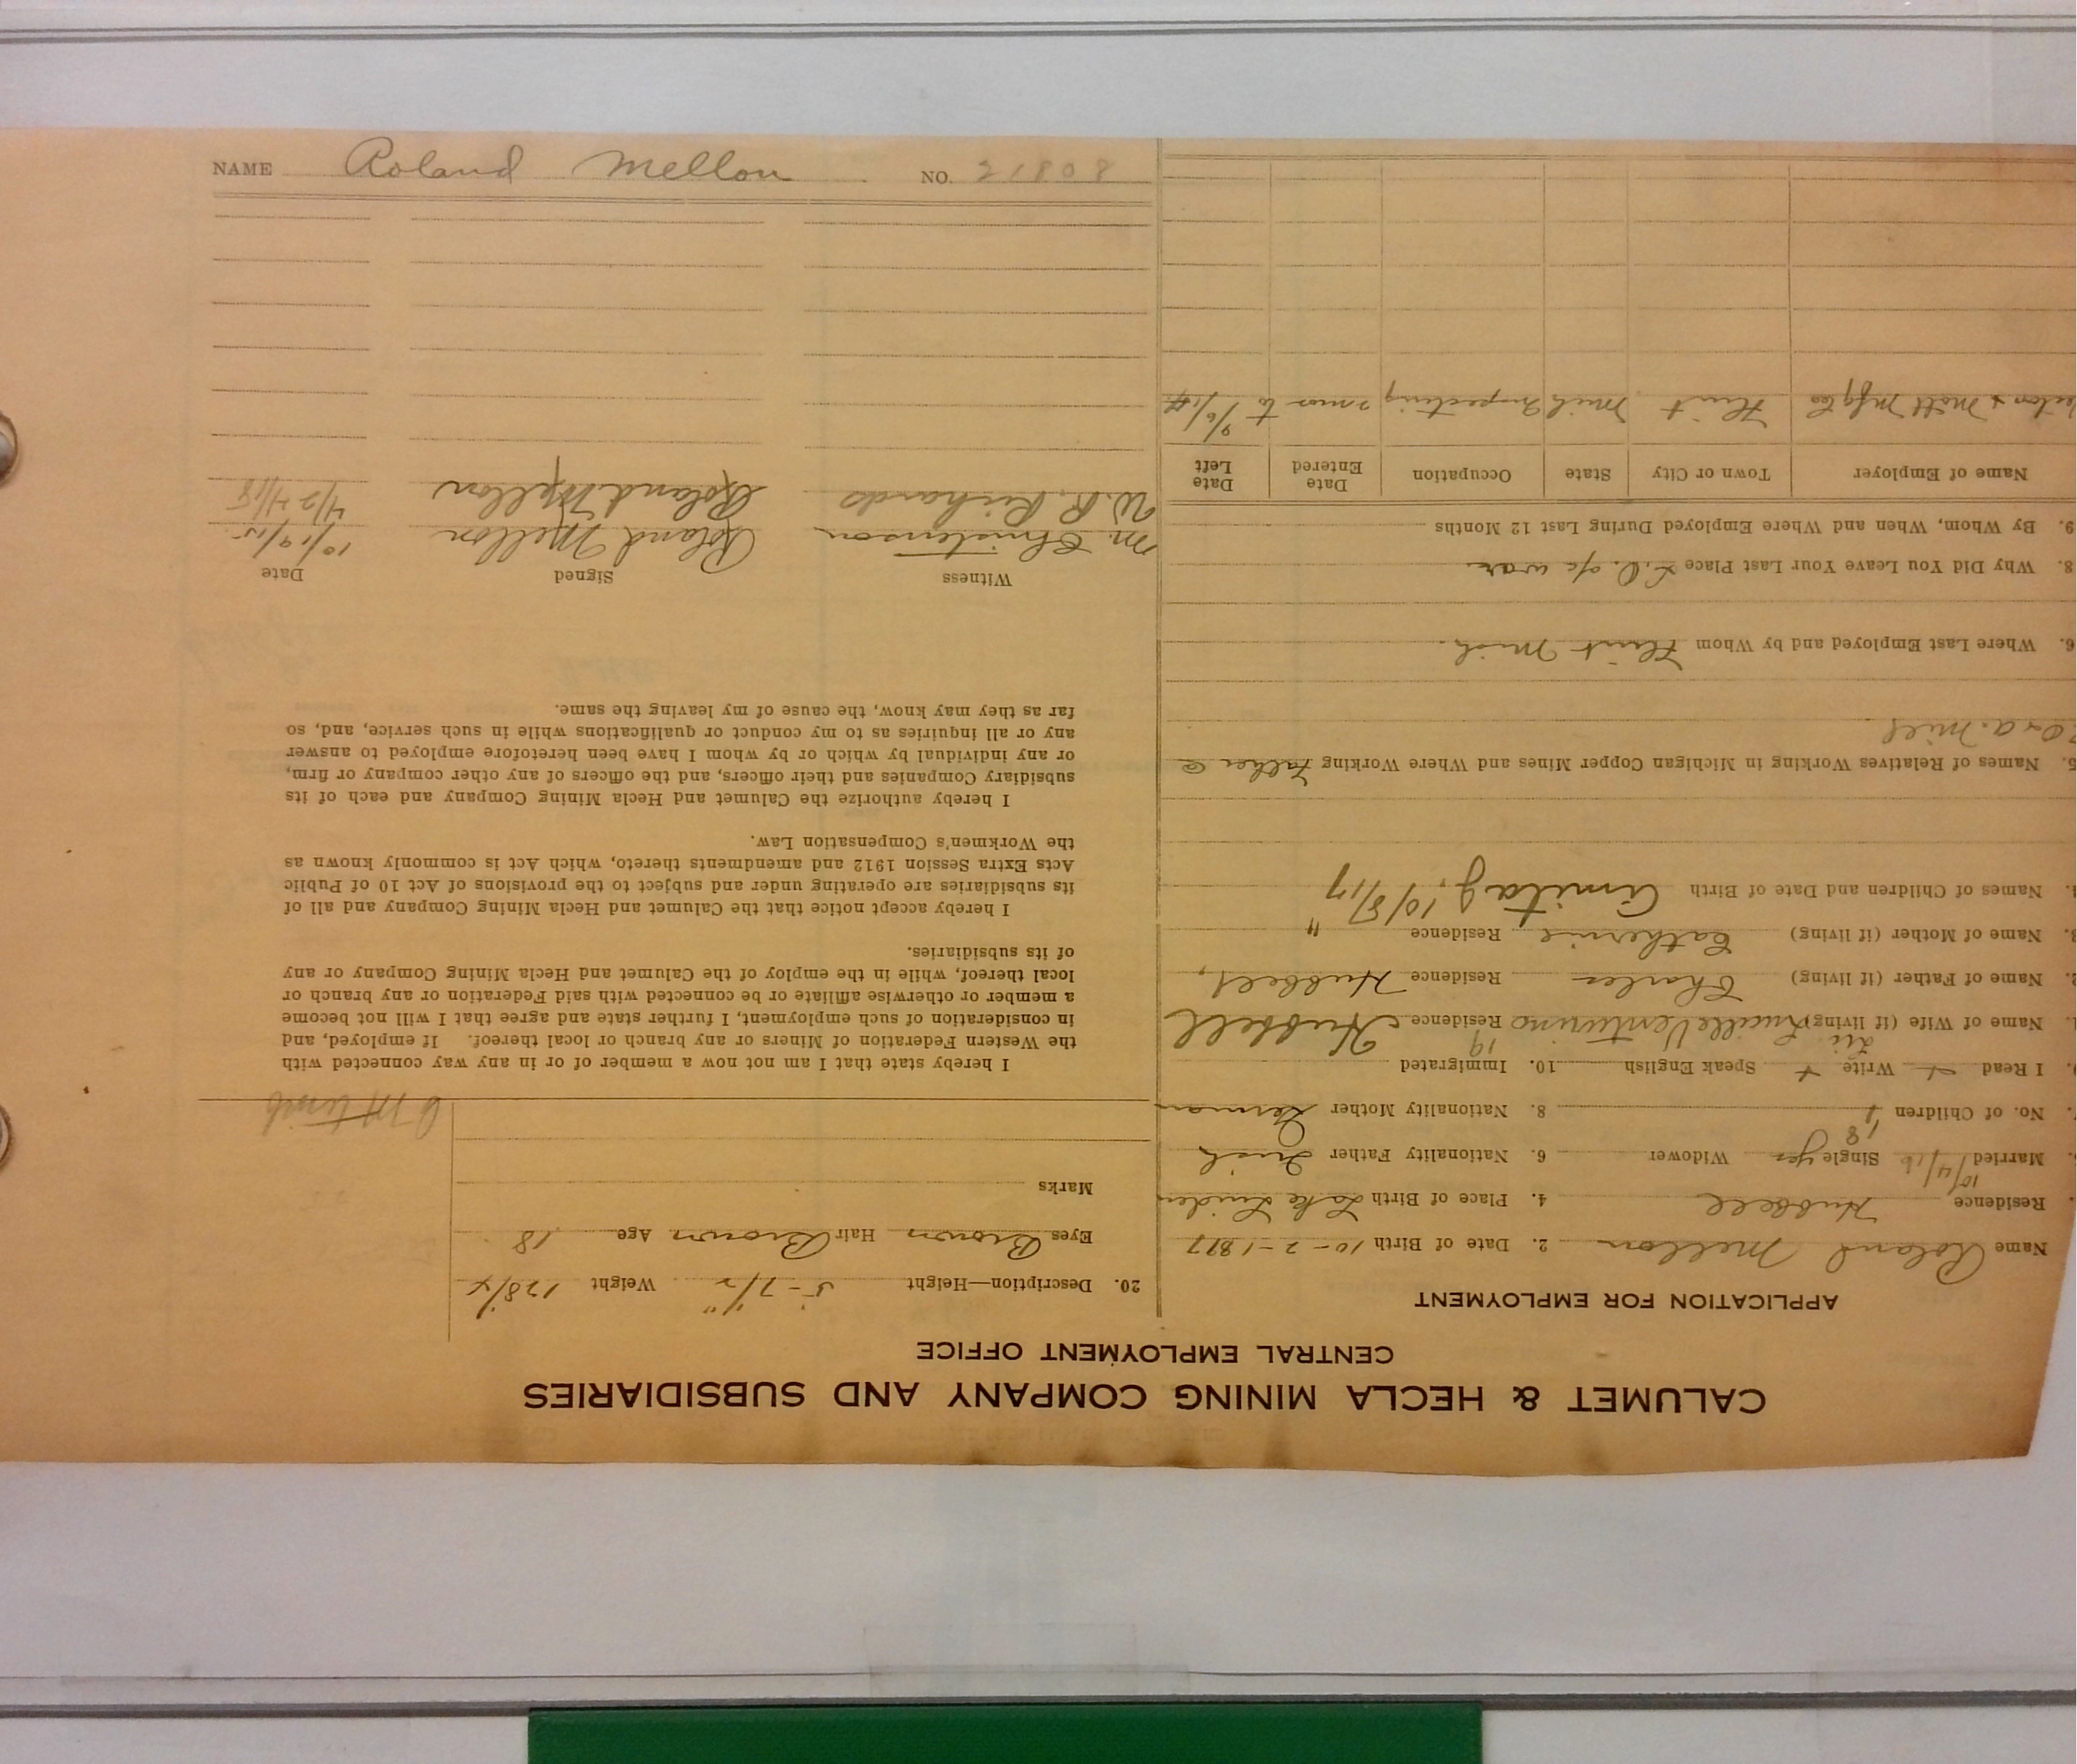 CALUMET & HECLA MINING COMPANY AND SUBSIDIARIES
CENTRAL EMPLOYMENT OFFICE
APPLICATION FOR EMPLOYMENT
Name Roland Mellon 2. Date of Birth 10-2-1897
Residence Hubbell 4. Place of Birth Lake Linden
Married 10/4/16 Single yes Widower 6. Nationality Father Irish
18
No. of Children 1 8. Nationality Mother German
I Read + Write + Speak English 10. Immigrated
19
Name of Wife (if living) Lucille Venturino Residence Hubbell
2. Name of Father (if living) Charles Residence Hubbell,
3. Name of Mother (if living) Catherine Residence "
4. Names of Children and Date of Birth Anita J, 10/8/17
5. Names of Relatives Working in Michigan Copper Mines and Where Working Father @
a. Mill
6. Where Last Employed and by Whom Flint Mich.
8. Why Did You Leave Your Last Place L.O. of a war
9. By Whom, When and Where Employed During Last 12 Months
Name of Employer Town or City State Occupation Date Entered Date Left
Mott Mfg Co Flint Mich Inspecting 2 mos to 9/6/14
20. Description—Height 5'-7 1/2" Weight 128 1/4
Eyes Brown Hair Brown Age 18
Marks
I hereby state that I am not now a member of or in any way connected with
the Western Federation of Miners or any branch or local thereof. If employed, and
in consideration of such employment, I further state and agree that I will not become
a member or otherwise affiliate or be connected with said Federation or any branch or
local thereof, while in the employ of the Calumet and Hecla Mining Company or any
of its subsidiaries.
I hereby accept notice that the Calumet and Hecla Mining Company and all of
its subsidiaries are operating under and subject to the provisions of Act 10 of Public
Acts Extra Session 1912 and amendments thereto, which Act is commonly known as
the Workmen's Compensation Law.
I hereby authorize the Calumet and Hecla Mining Company and each of its
subsidiary Companies and their officers, and the officers of any other company or firm,
or any individual by which or by whom I have been heretofore employed to answer
any or all inquiries as to my conduct or qualifications while in such service, and, so
far as they may know, the cause of my leaving the same.
Witness Signed Date
M. Christenson Roland Mellon 10/19/15
W. R. Richards Roland Mellon 4/24/18
NAME Roland Mellon NO. 21808